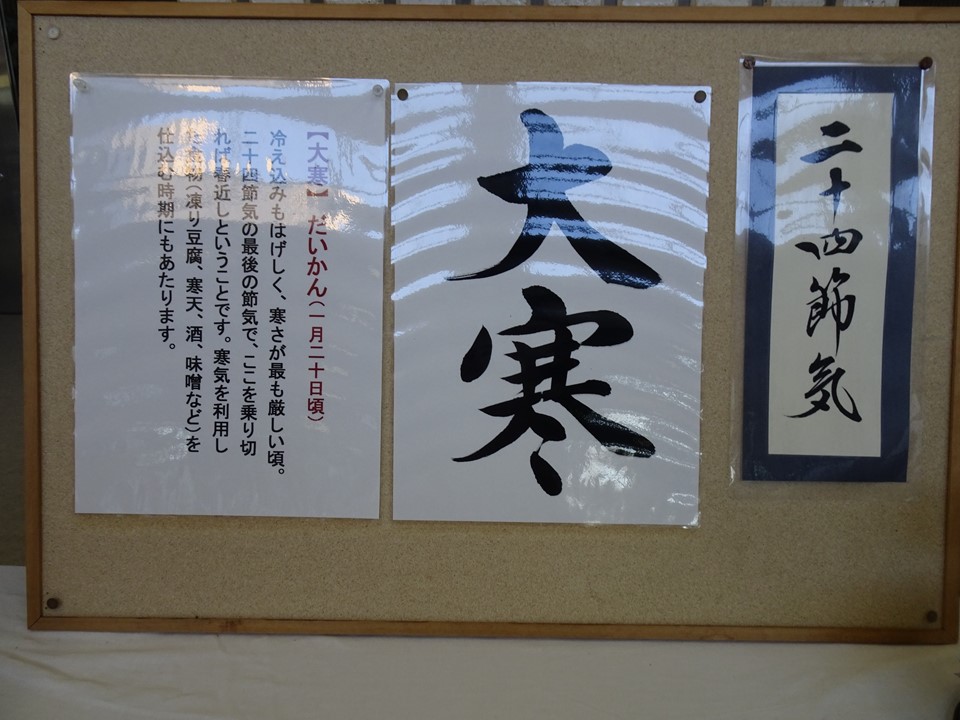 二十四節気
大寒
【大寒】 だいかん(一月二十日頃)
冷え込みもはげしく、寒さが最も厳しい頃。
二十四節気の最後の節気で、ここを乗り切
れば春近しということです。寒気を利用し
物(凍り豆腐、寒天、酒、味噌など)を
仕込む時期にもあたります。